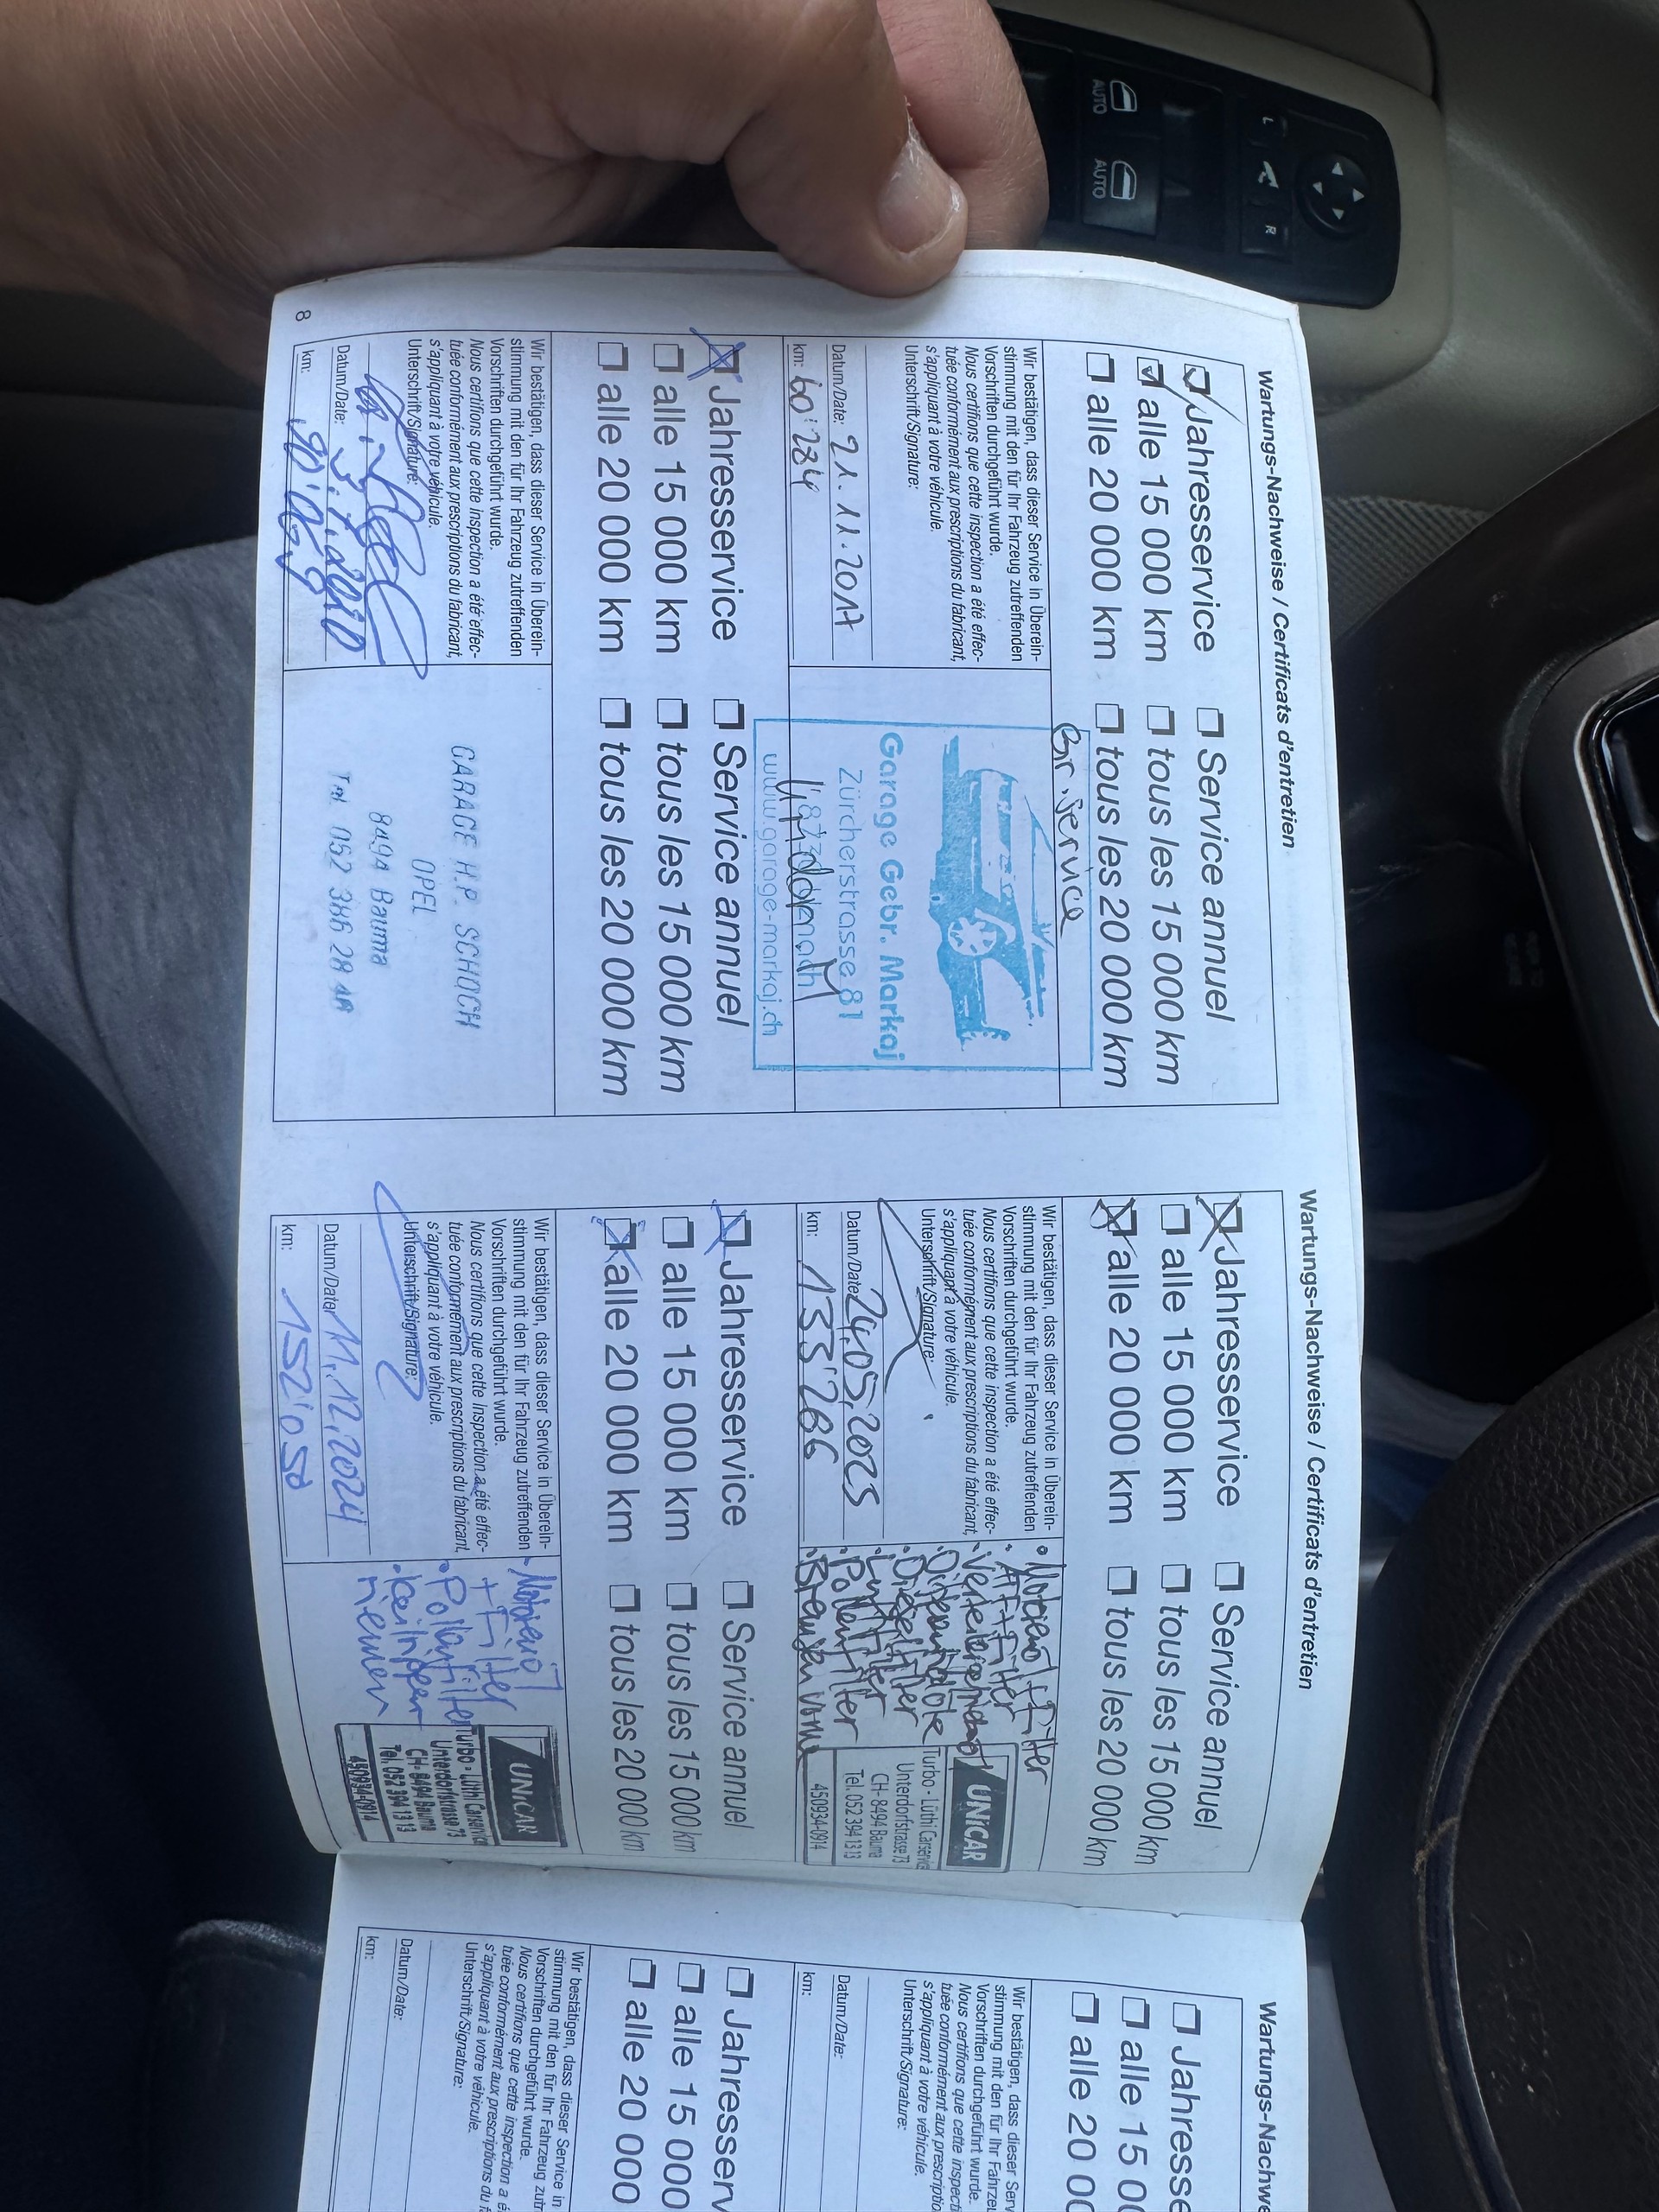 AUTO
AUTO
L
R
Wartungs-Nachweise / Certificats d'entretien
Jahresservice
Service annuel
alle 15 000 km
tous les 15 000 km
alle 20 000 km
tous les 20 000 km
Gr. Service
Wir bestätigen, dass dieser Service in Überein-
stimmung mit den für Ihr Fahrzeug zutreffenden
Vorschriften durchgeführt wurde.
Nous certifions que cette inspection a été effec-
tuée conformément aux prescriptions du fabricant,
s'appliquant à votre véhicule.
Unterschrift/Signature:
Datum/Date: 21.11.2017
km: 60'284
Garage Gebr. Markaj
Zürcherstrasse 81
www.garage-markaj.ch
Jahresservice
Service annuel
alle 15 000 km
tous les 15 000 km
alle 20 000 km
tous les 20 000 km
Wir bestätigen, dass dieser Service in Überein-
stimmung mit den für Ihr Fahrzeug zutreffenden
Vorschriften durchgeführt wurde.
Nous certifions que cette inspection a été effec-
tuée conformément aux prescriptions du fabricant,
s'appliquant à votre véhicule.
Unterschrift/Signature:
Datum/Date:
km:
GARAGE H.P. SCHOCH
OPEL
8494 Bauma
Tel. 052 386 28
8
Wartungs-Nachweise / Certificats d'entretien
Jahresservice
Service annuel
alle 15 000 km
tous les 15 000 km
alle 20 000 km
tous les 20 000 km
Wir bestätigen, dass dieser Service in Überein-
stimmung mit den für Ihr Fahrzeug zutreffenden
Vorschriften durchgeführt wurde.
Nous certifions que cette inspection a été effec-
tuée conformément aux prescriptions du fabricant,
s'appliquant à votre véhicule.
Unterschrift/Signature:
Datum/Date: 24.05.2023
km: 133'286
• Motorenöl + Filter
Dieselfilter
• Luftfilter
• Pollenfilter
• Bremsen vorne
UNICAR
Turbo - Lüthi Carservice
Unterdorfstrasse 73
CH- 8494 Bauma
Tel. 052 394 13 13
450934-0914
Jahresservice
Service annuel
alle 15 000 km
tous les 15 000 km
alle 20 000 km
tous les 20 000 km
Wir bestätigen, dass dieser Service in Überein-
stimmung mit den für Ihr Fahrzeug zutreffenden
Vorschriften durchgeführt wurde.
Nous certifions que cette inspection a été effec-
tuée conformément aux prescriptions du fabricant,
s'appliquant à votre véhicule.
Unterschrift/Signature:
Datum/Date: 11.12.2024
km: 152'050
• Motorenöl
+ Filter
• Pollenfilter
• Keilrippen
riemen
UNICAR
Turbo - Lüthi Carservice
Unterdorfstrasse 73
CH- 8494 Bauma
Tel. 052 394 13 13
450934-0914
Wartungs-Nachwe
Jahresse
alle 15 0
alle 20 00
Wir bestätigen, dass dieser Serv
stimmung mit den für Ihr Fahrze
Vorschriften durchgeführt wurde.
Nous certifions que cette inspect
tuée conformément aux prescriptio
s'appliquant à votre véhicule.
Unterschrift/Signature:
Datum/Date:
km:
Jahresserv
alle 15 000
alle 20 000
Wir bestätigen, dass dieser Service in
stimmung mit den für Ihr Fahrzeug zutr
Vorschriften durchgeführt wurde.
Nous certifions que cette inspection a é
tuée conformément aux prescriptions du f
s'appliquant à votre véhicule.
Unterschrift/Signature:
Datum/Date:
km: